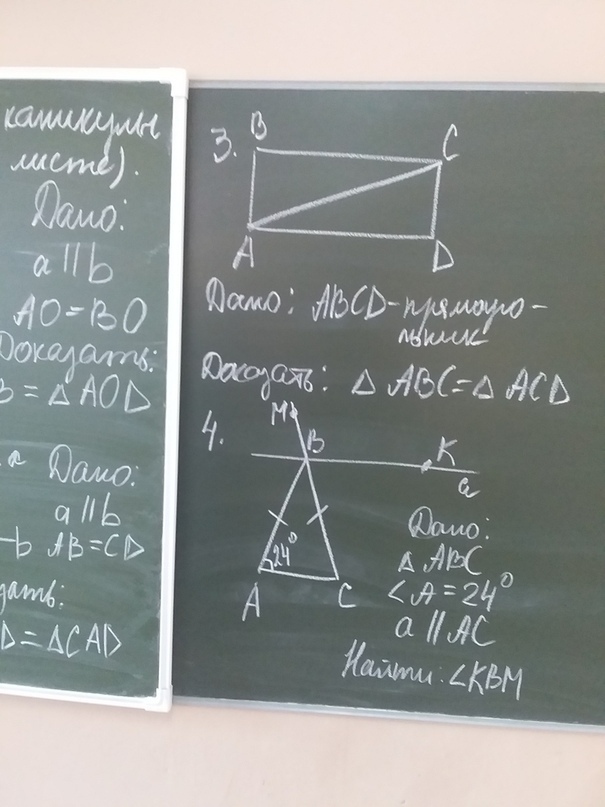 каникулы
листе).
Дано:
a || b
AO = BO
Доказать:
B = △ AOD
Дано:
a || b
b AB = CD
зать:
D = △CAD
3. B C
A D
Дано: ABCD - прямоуго-
льник
Доказать: △ ABC = △ ACD
4. M B K
a
24°
A C
Дано:
△ ABC
∠A = 24°
a || AC
Найти: ∠KBM